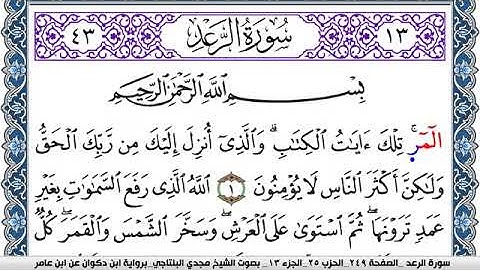 ١٣ سُورَةُ الرَّعْدِ ٤٣
بِسْمِ اللَّهِ الرَّحْمَٰنِ الرَّحِيمِ
الٓمٓرۚ تِلْكَ ءَايَٰتُ الْكِتَٰبِۗ وَالَّذِىٓ أُنزِلَ إِلَيْكَ مِن رَّبِّكَ الْحَقُّ
وَلَٰكِنَّ أَكْثَرَ النَّاسِ لَا يُؤْمِنُونَ ١ اللَّهُ الَّذِى رَفَعَ السَّمَٰوَٰتِ بِغَيْرِ
عَمَدٍ تَرَوْنَهَاۖ ثُمَّ اسْتَوَىٰ عَلَى الْعَرْشِۖ وَسَخَّرَ الشَّمْسَ وَالْقَمَرَۖ كُلٌّ
سورة الرعد _الصفحة ٢٤٩_الحزب ٢٥_الجزء ١٣ _ بصوت الشيخ مجدي البلتاجي_برواية ابن ذكوان عن ابن عامر